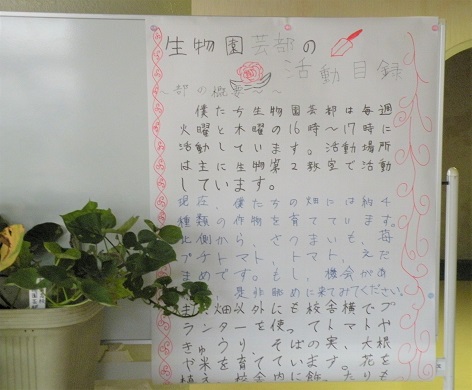 生物園芸部の
活動目録
〜部の概要〜
僕たち生物園芸部は毎週
火曜と木曜の16時〜17時に
活動しています。活動場所
は主に生物第2教室で活動
しています。
現在、僕たちの畑には約4
種類の作物を育てています。
北側から、さつまいも、苺
プチトマト、トマト、えだ
まめです。もし、機会があ
是非眺めに来てみてください。
また、畑以外にも校舎横でプ
ランターを使ってトマトや
きゅうり、そばの実、大根
や米を育てています。花をも
植え、校舎内に飾ったりも